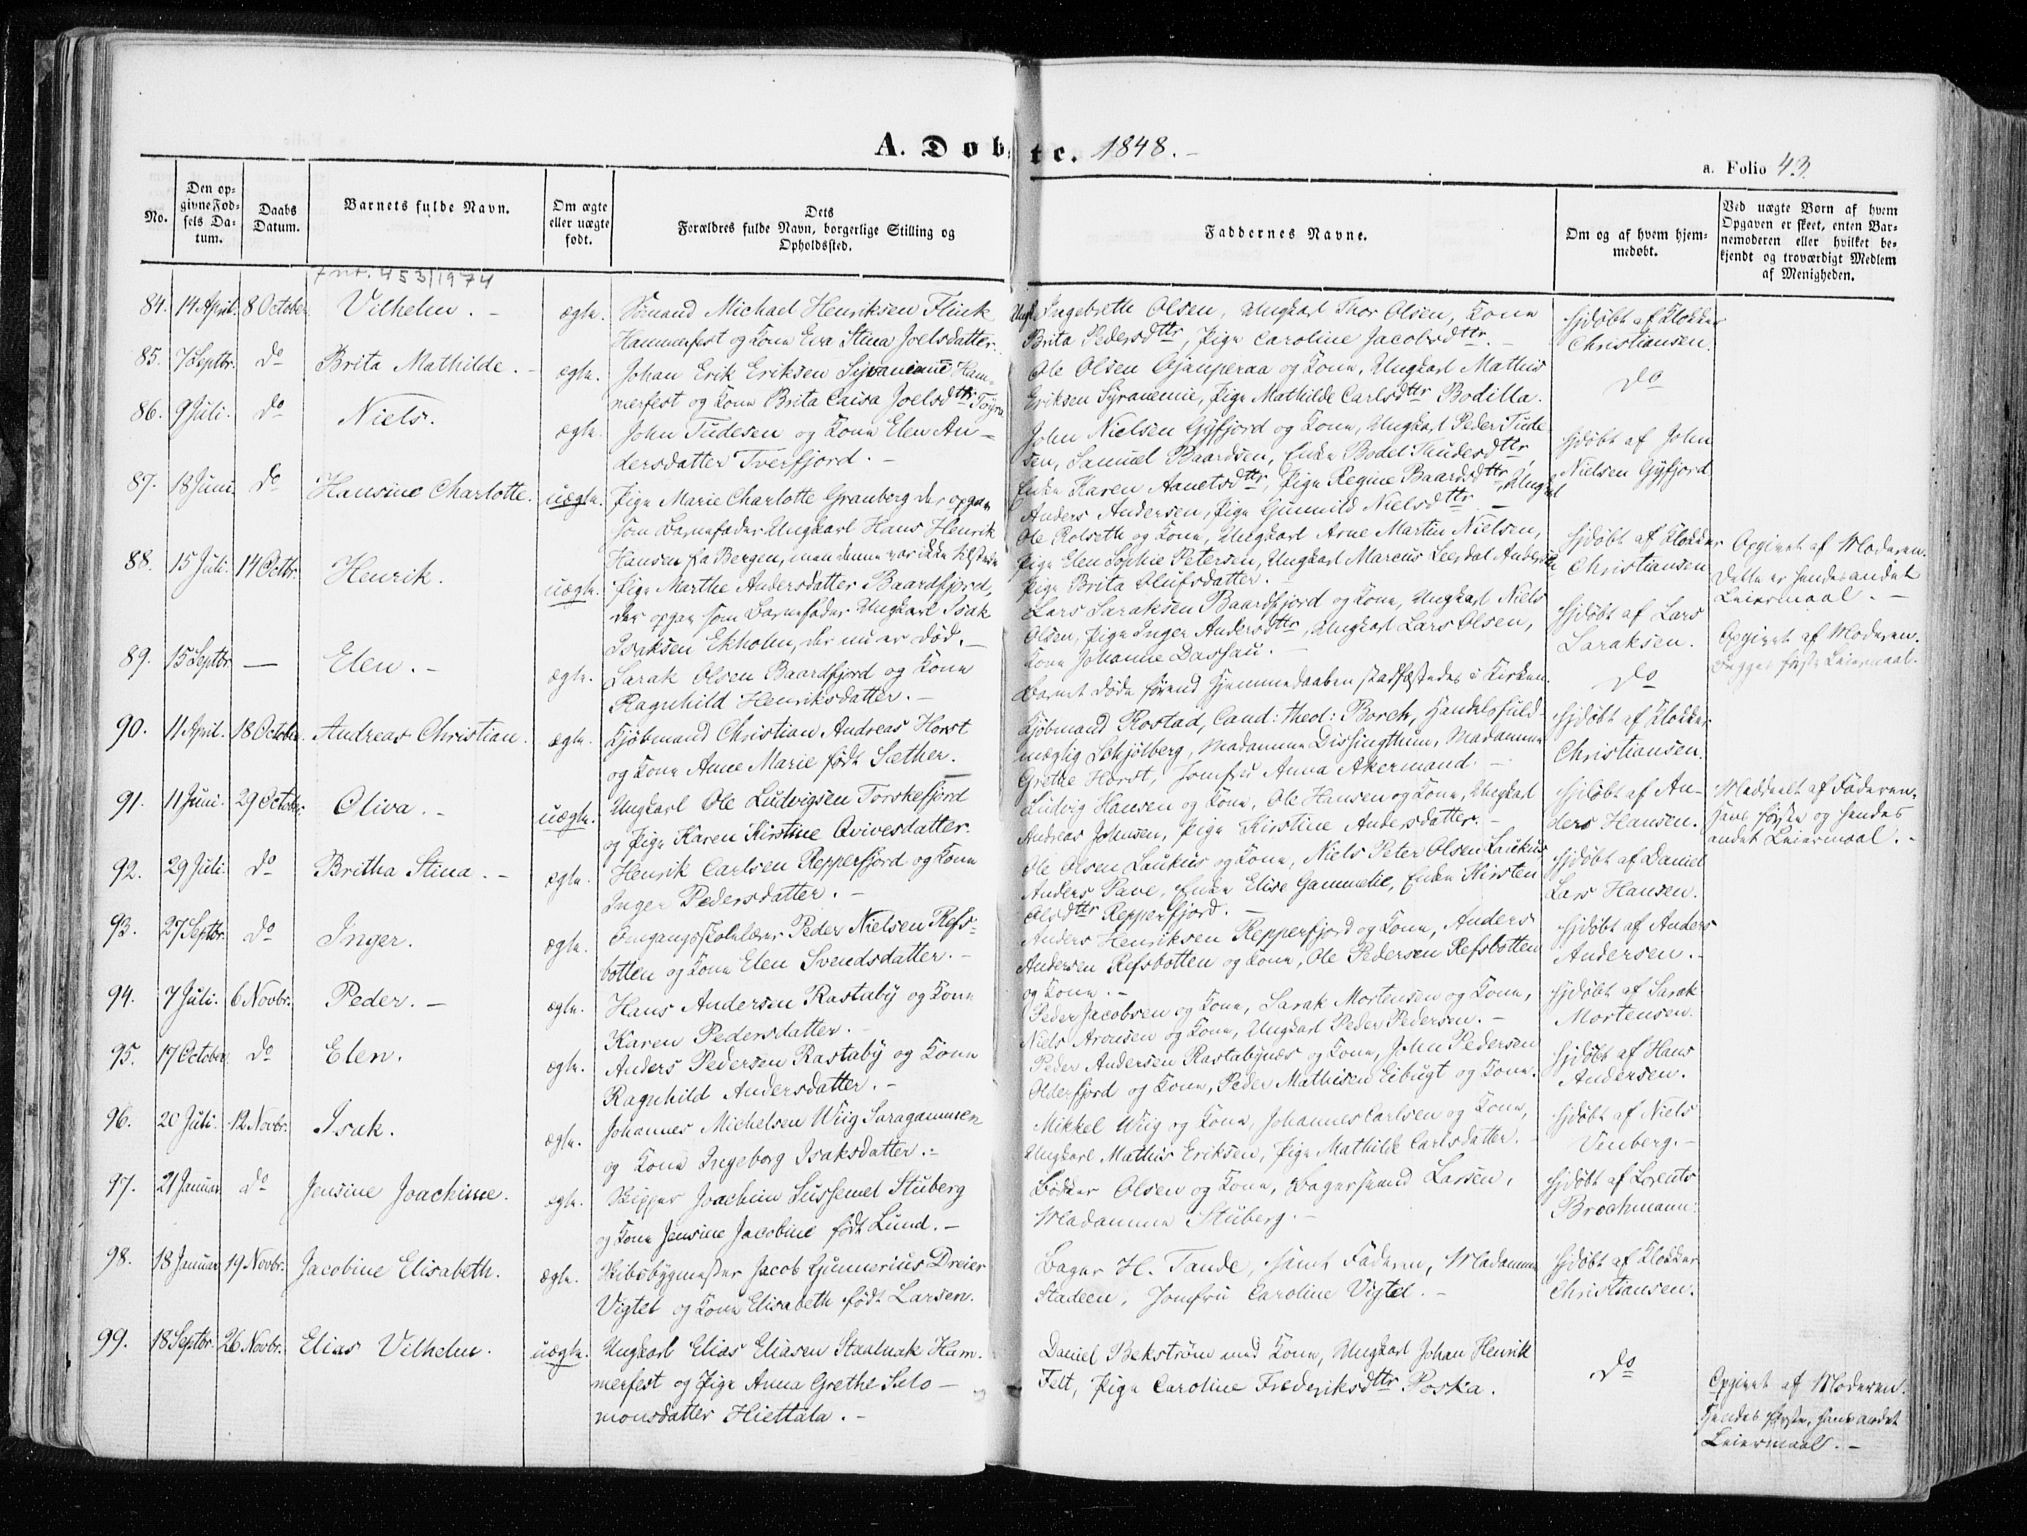 A. Døbte. 1848.-
a. Folio 43.
No.
Den opgivne Fødsels Datum.
Daabs Datum.
Barnets fulde Navn.
Om ægte eller uægte født.
Dets Forældres fulde Navn, borgerlige Stilling og Opholdssted.
Faddernes Navne.
Om og af hvem hjemmedøbt.
Ved uægte Børn af hvem Opgaven er skeet, enten Barnemoderen eller hvilket bekjendt og troværdigt Medlem af Menigheden.
nt. 453/1974
84. 14 April. 8 October Vilhelm. - ægte. Sømand Michael Henriksen Flink
Hammerfest og Kone Eva Stina Joelsdatter.
Ungk. Ingebreth Olsen, Ungkarl Thor Olsen, Kone
Brita Pedersdttr, Pige Caroline Jacobsdttr. -
Hjdøbt af Klokker
Christiansen.
85. 7 Septbr. do Brita Mathilde. - ægte. Johan Erik Eriksen Syvaniemi Ham-
merfest og Kone Brita Caisa Joelsdttr
Ole Olsen Ajanperaa og Kone, Ungkarl Mathis
Eriksen Syvanemie, Pige Mathilde Carlsdttr Bodilla.
do
86. 9 Juli. do Niels. ægte. John Tudesen og Kone Elen An-
dersdatter Tverfjord. -
John Nielsen Gyfjord og Kone, Ungkarl Peder Tude
sen, Samuel Baardsen, Enke Bodel Thudesdttr,
Enke Karen Aanetsdttr, Pige Regine Baardsdttr, Ungkarl
Anders Andersen, Pige Gunnild Nielsdttr -
Hjdøbt af John
Nielsen Gyfjord
87. 18 Juni. do Hansine Charlotte. uægte. Pige Marie Charlotte Granberg der opgav
som Barnefader Ungkarl Hans Henrik
Hansen fra Bergen, men denne var ikke tilstede
Ole Rolseth og Kone, Ungkarl Arne Martin Nielsen,
Pige Elen Sophie Petersen, Ungkarl Marcus Leerdal
Pige Brita Olufsdatter. -
Hjdøbt af Klokker
Christiansen
Opgivet af Moderen.
Dette er hendes andet
Leiermaal. -
88. 15 Juli. 14 Octbr. Henrik. uægte. Pige Marthe Andersdatter Baardfjord,
der opgav som Barnefader Ungkarl Isak
Isaksen Ekholm, der nu er død. -
Lars Saraksen Baardfjord og Kone, Ungkarl Niels
Olsen, Pige Inger Andersdttr, Ungkarl Lars Olsen,
Kone Johanne Dassau. -
Hjdøbt af Lars
Saraksen.
Opgivet af Moderen.
Begges første Leiermaal.
89. 15 Septbr - Elen. - ægte. Sarak Olsen Baardfjord og Kone
Ragnhild Henriksdatter. -
Barnet døde førend Hjemmedaaben stadfæstedes i Kirken.
do
90. 11 April. 18 October. Andreas Christian. ægte. Kjøbmand Christian Andreas Horst
og Kone Anne Marie født Sæther.
Kjøbmand Rostad, Cand: theol: Borch, Handelsfuld-
mægtig Schjølberg, Madamme Dissingthun, Madamme
Grethe Horst, Jomfru Anna Akermand. -
Hjdøbt af Klokker
Christiansen.
91. 11 Juni. 29 October Oliva. - uægte. Ungkarl Ole Ludvigsen Torskefjord
og Pige Karen Kirstine Qvivesdatter.
Ludvig Hansen og Kone, Ole Hansen og Kone, Ungkarl
Andreas Johnsen, Pige Kirstine Andersdatter. -
Hjdøbt af An-
ders Hansen.
Meddeelt af Faderen.
Hans første og hendes
andet Leiermaal. -
92. 29 Juli. do Britha Stina. - ægte. Henrik Carlsen Repperfjord og Kone
Inger Pedersdatter. -
Ole Olsen Laukus og Kone, Niels Peter Olsen Laukus
Anders Pave, Enke Elise Gammelie, Enke Kirsten
Olsdttr Repperfjord. -
Hjdøbt af Daniel
Lars Hansen.
93. 27 Septbr. do Inger. ægte. Omgangsskolelærer Peder Nielsen Refs-
botten og Kone Elen Svendsdatter. -
Anders Henriksen Repperfjord og Kone, Anders
Andersen Refsbotten og Kone, Ole Pedersen Refsbotten
og Kone. -
Hjdøbt af Anders
Andersen. -
94. 7 Juli. 6 Novbr. Peder. - ægte. Hans Andersen Rastaby og Kone
Karen Pedersdatter. -
Peder Jacobsen og Kone, Sarak Mortensen og Kone,
Niels Aronsen og Kone, Ungkarl Peder Pedersen. -
Hjdøbt af Sarak
Mortensen.
95. 17 October. do Elen. ægte. Anders Pedersen Rastaby og Kone
Ragnhild Andersdatter. -
Peder Andersen Rastabynæs og Kone, John Pedersen
Olderfjord og Kone, Peder Mathisen Eibugt og Kone.
Hjdøbt af Hans
Andersen.
96. 20 Juli. 12 Novbr. Isak. ægte. Johannes Michelsen Wiig Saragammen
og Kone Ingeborg Isaksdatter. -
Mikkel Wiig og Kone, Johannes Carlsen og Kone,
Ungkarl Mathis Eriksen, Pige Mathilde Carlsdatter. -
Hjdøbt af Niels
Vinberg. -
97. 21 Januar do Jensine Joachime. ægte. Skipper Joachim Sussemel Stuberg
og Kone Jensine Jacobine født Lund. -
Bødker Olsen og Kone, Bagersvend Larsen,
Madamme Stuberg. -
Hjdøbt af Lorents
Brochmann.
98. 18 Januar 19 Novbr. Jacobine Elisabeth. ægte. Skibsbygmester Jacob Gunnerius Dreier
Vigtel og Kone Elisabeth født Larsen.
Bager H. Tande, samt Faderen, Madamme
Stadeen, Jomfru Caroline Vigtel. -
Hjdøbt af Klokker
Christiansen.
99. 18 Septbr. 26 Novbr. Elias Vilhelm. uægte. Ungkarl Elias Eliasen Staalnak Ham-
merfest og Pige Anna Grethe Salo-
monsdatter Hiettala. -
Daniel Bekstrøm med Kone, Ungkarl Johan Henrik
Felt, Pige Caroline Frederiksdttr Poska.
do
Opgivet af Moderen.
Hendes første, hans andet
Leiermaal. -